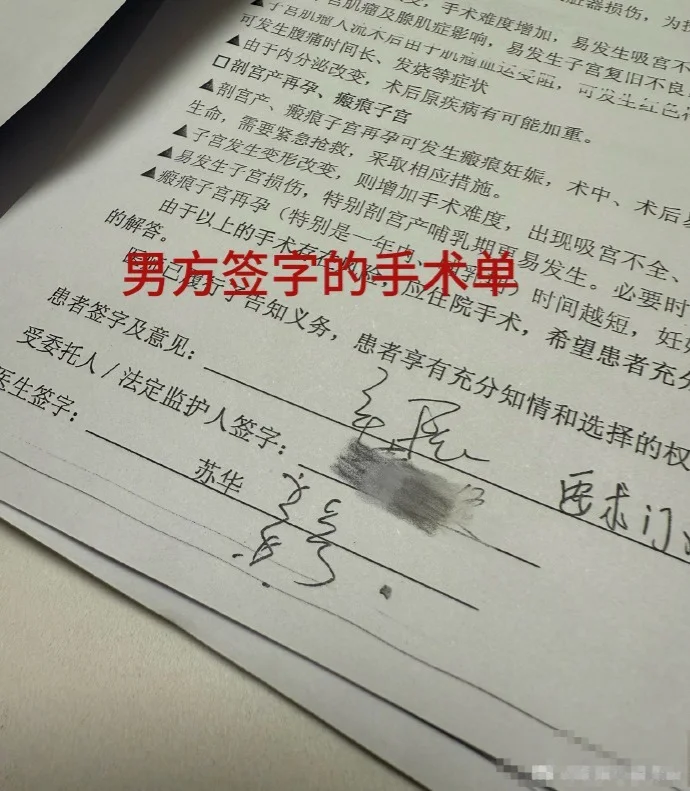 宫肌瘤及腺肌症影响，手术难度增加，易发生吸宫不
▲子宫肌瘤人流术后由于肌瘤血运受阻，可发生红色
可发生腹痛时间长、发烧等症状
▲由于内分泌改变，术后原疾病有可能加重。
□剖宫产再孕、瘢痕子宫
▲剖宫产、瘢痕子宫再孕可发生瘢痕妊娠，术中、术后
生命，需要紧急抢救，采取相应措施。
▲子宫发生变形改变，则增加手术难度，出现吸宫不全、
▲易发生子宫损伤，特别剖宫产哺乳期更易发生。必要时
▲瘢痕子宫再孕（特别是一年内、 ）时间越短，妊
由于以上的手术存在风险，应住院手术，希望患者充分
的解答。
男方签字的手术单
已履行了告知义务，患者享有充分知情和选择的权
患者签字及意见：
要求门
受委托人/法定监护人签字：
医生签字：
苏华